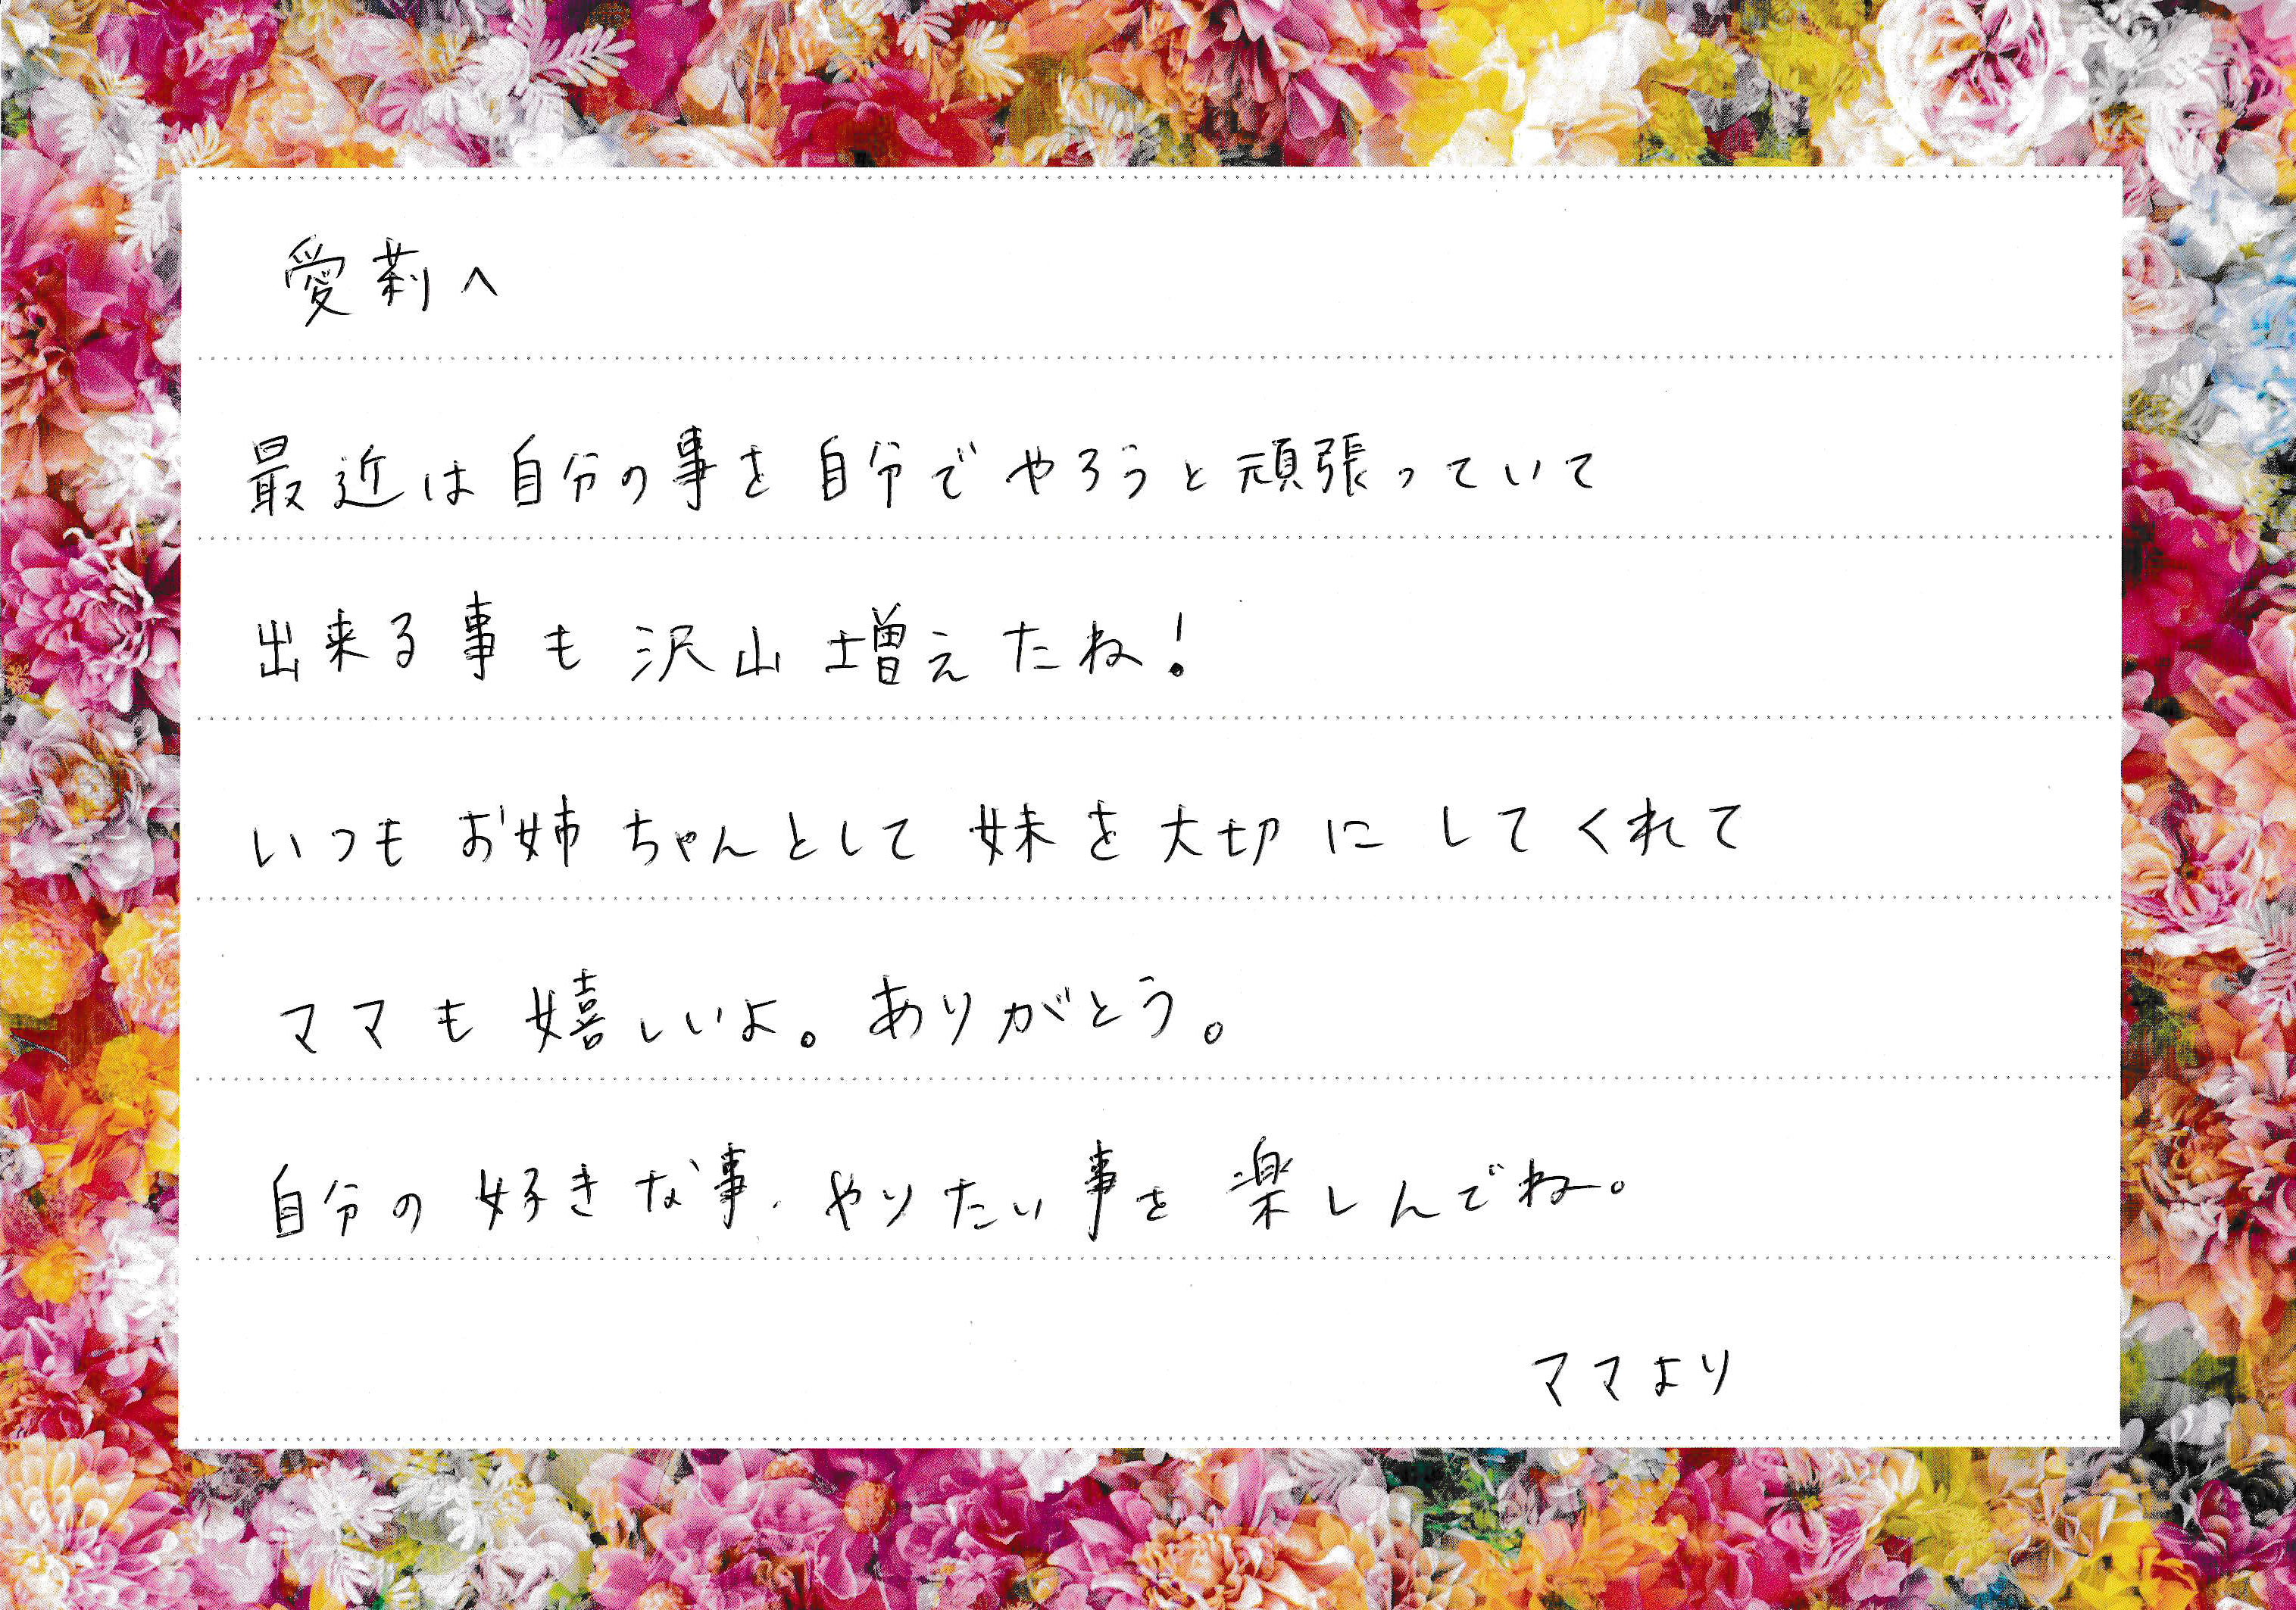 愛莉へ
最近は自分の事を自分でやろうと頑張っていて
出来る事も沢山増えたね!
いつもお姉ちゃんとして妹を大切にしてくれて
ママも嬉しいよ。ありがとう。
自分の好きな事、やりたい事を楽しんでね。
ママより